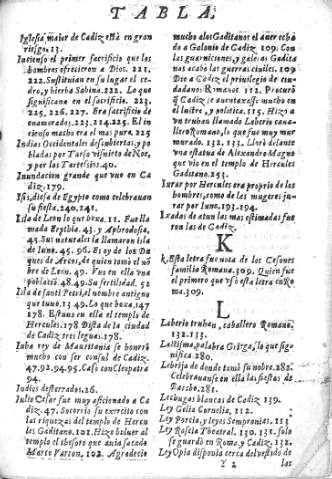 TABLA.
Iglesia mayor de Cadiz està en gran
riesgo. 13.
Incienso el primer sacrificio que los
hombres ofrecieron a Dios. 221.
222. Sustituian en su lugar el ce-
dro, y hierba Sabina. 222. Lo que
significana en el sacrificio. 223.
225. 226. 227. Era sacrificio de
enamorados. 223. 224. 225. El in
cienso macho era el mas puro. 225
Indias Occidentales descubiertas, y po
bladas por Tarsis visnieto de Noe,
y por los Tartesios. 40.
Inundacion grande que vuo en Ca
diz. 179.
Isis, diosa de Egypto como celebrauan
su fiesta. 240. 241.
Isla de Leon lo que boxa. 11. Fue lla
mada Erythia. 43. y Aphrodisia,
45. Sus naturales la llamaron isla
de Iuno. 45. 96. Es oy de los Du
ques de Arcos, de quien tomò el nō
bre de Leon. 49. Vuo en ella vna
poblaciō 48. 49. Su fertilidad. 52
Isla de santi Petri, el nombre antiguo
que tuuo. 13. 49. Lo que boxa, 147
178. Estuuo en ella el templo de
Hercules. 178 Dista de la ciudad
de Cadiz tres legua. 178.
Iuba rey de Mauritania se honrò
mucho con ser consul de Cadiz.
47. 92. 94. 95. Casò con Cleopatra
94.
Indios desterrados. 26.
Iulio Cesar fue muy aficionado a Ca
diz. 47. Socorrio su exercito con
las riquezas del templo de Hercu
les Gaditano. 101. Hizo boluer al
templo el thesoro que auia sacado
Marco Varron, 102. Agradecio
mucho a los Gaditanos el auer echa
do a Galonio de Cadiz. 109. Con
las guarniciones, y galeras Gadita
nas acabò las guerras ciuiles. 109
Dio a Cadiz el priuilegio de ciu-
dadanos Romanos. 112. Procurò
q̄ Cadiz se auentexasse mucho en
lo ilustre, y politico. 115. Hizo a
vn truhan llamado Laberio caua-
llero Romano, lo que fue muy mur
murado. 132. 133. Llorò delante
vna estatua de Alexandro Magno
que vio en el templo de Hercules
Gaditano. 253.
Iurar por Hercules era proprio de los
hombres, como de las mugeres ju-
rar por Iuno. 193. 194.
Ixadas de atun las mas estimadas fue
ron las de Cadiz.
K
k. Esta letra fue nota de los Cesones
familia Romana. 309. Quien fue
el primero que vso esta letra en Ro
ma. 309.
L
Laberio truhan, cauallero Romano.
132. 133.
Lebrija de donde tomò su nombre. 282.
Celebrauanse en ella las fiestas de
Baccho. 281.
Lechugas blancas de Cadiz. 139.
Ley Gelia Cornelia, 112.
Ley Porcia, y leyes Sempronias. 113
Ley Roscia Theatral. 130. 131. solo
se guardò en Roma, y Cadiz. 132.
Ley Opia disponia cerca del vestido de
Y 2
las